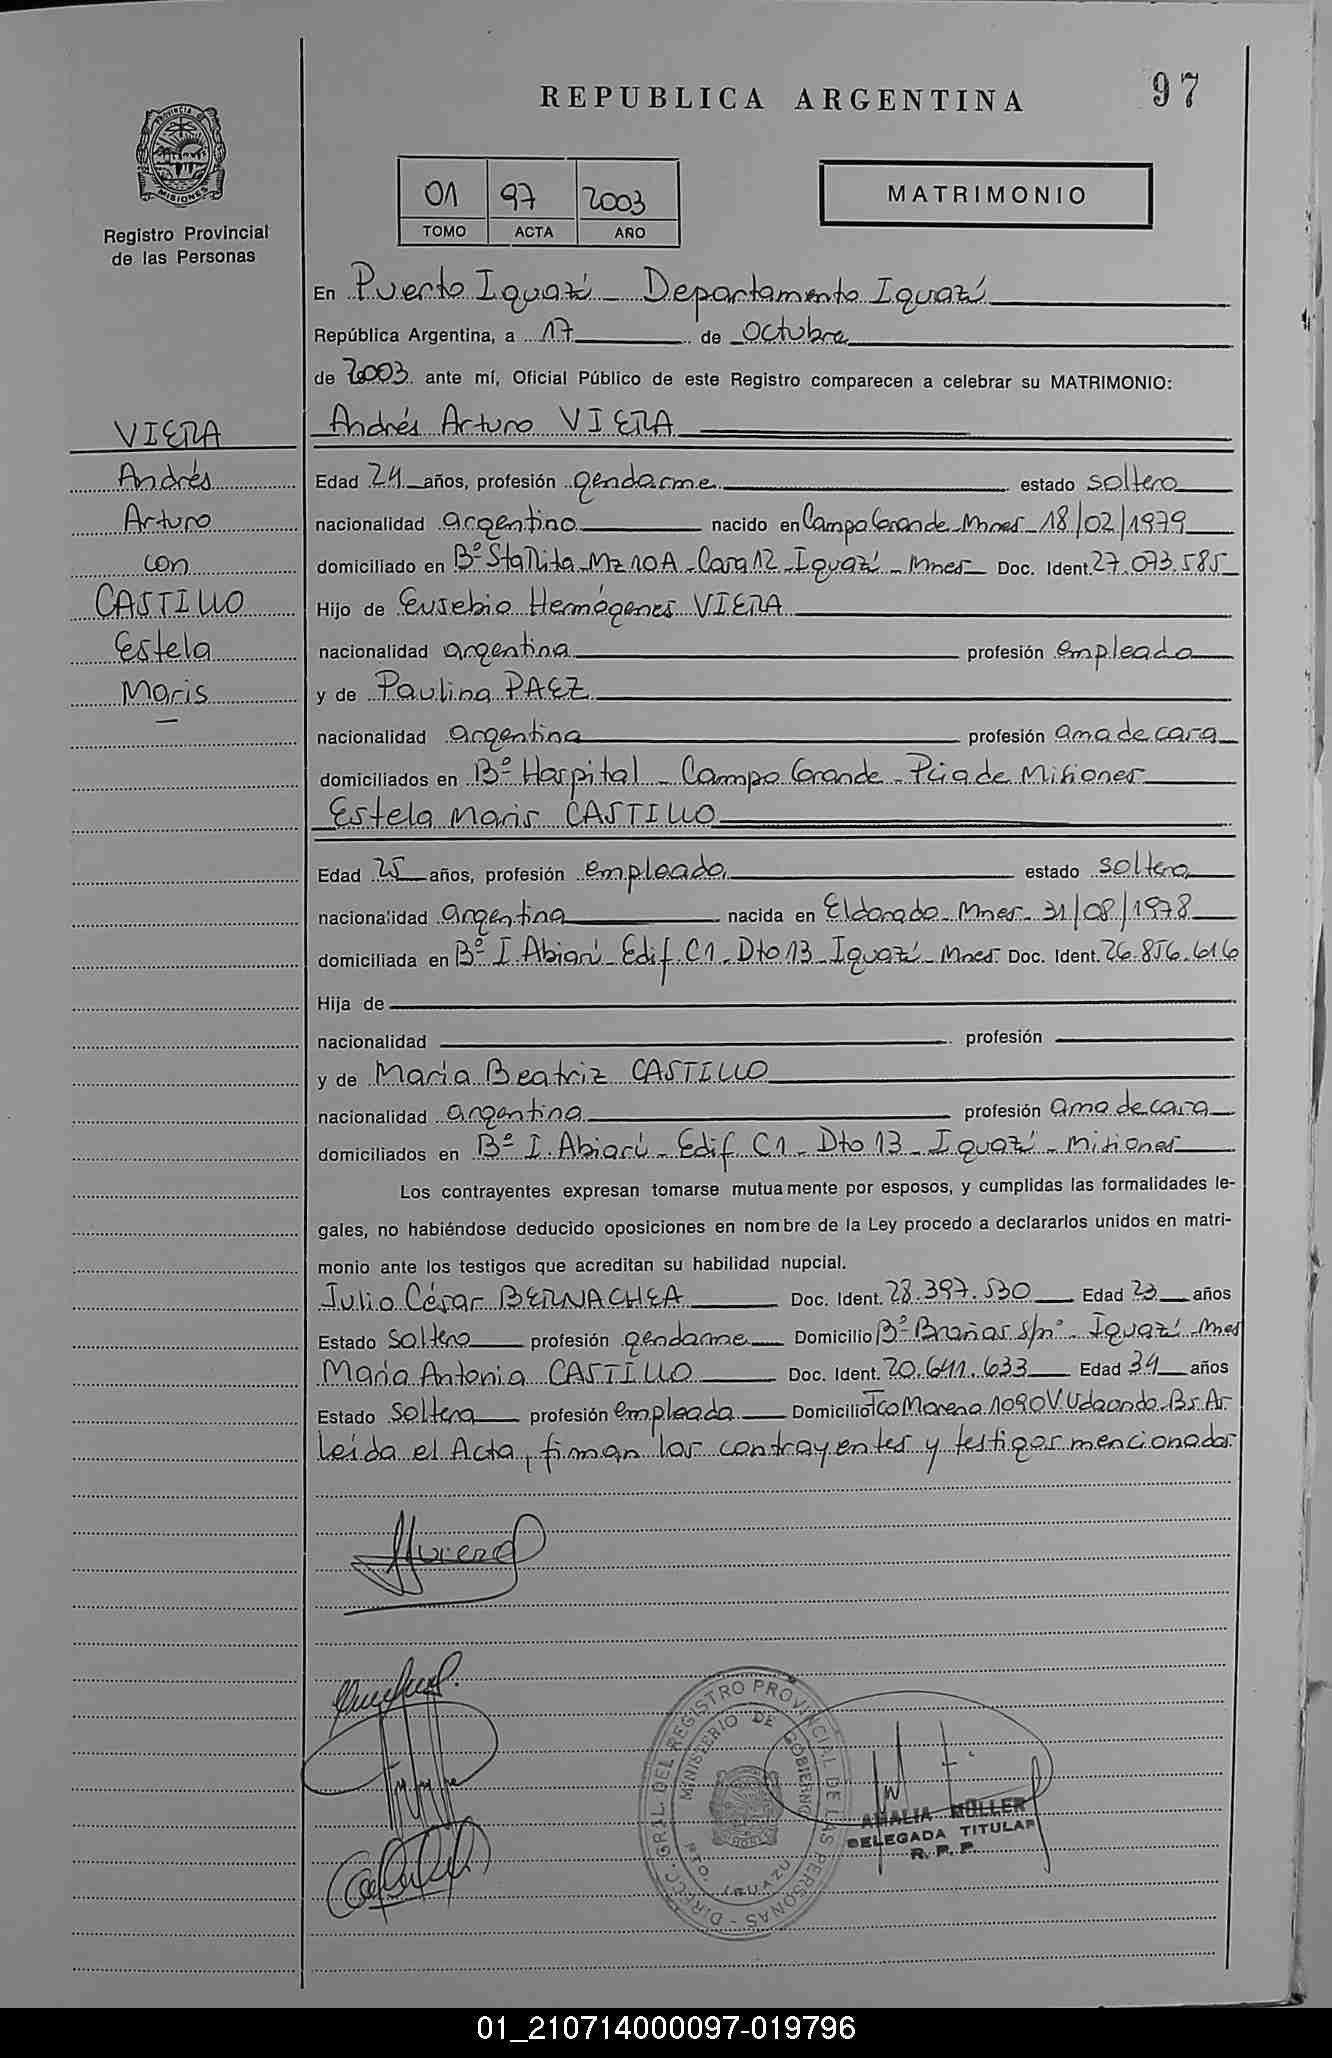 REPUBLICA ARGENTINA
97
PROVINCIA DE
MISIONES
Registro Provincial
de las Personas
01 97 2003
TOMO ACTA AÑO
MATRIMONIO
En Puerto Iguazú - Departamento Iguazú
República Argentina, a 17 de octubre
de 2003 ante mí, Oficial Público de este Registro comparecen a celebrar su MATRIMONIO:
VIERA
Andrés
Arturo
con
CASTILLO
Estela
Maris
Andrés Arturo VIERA
Edad 24 años, profesión gendarme estado soltero
nacionalidad argentino nacido en Campo Grande Mnes 18/02/1979
domiciliado en Bº Sta Rita - Mz 10A - Casa 12 - Iguazú - Mnes Doc. Ident. 27.073.585
Hijo de Eusebio Hermógenes VIERA
nacionalidad argentina profesión empleado
y de Paulina PAEZ
nacionalidad argentina profesión ama de casa
domiciliados en Bº Hospital - Campo Grande - Pcia de Misiones
Estela Maris CASTILLO
Edad 25 años, profesión empleada estado soltera
nacionalidad argentina nacida en Eldorado - Mnes - 31/08/1978
domiciliada en Bº I. Abiarú - Edif. C1 - Dto 13 - Iguazú - Mnes Doc. Ident. 26.856.616
Hija de
nacionalidad profesión
y de María Beatriz CASTILLO
nacionalidad argentina profesión ama de casa
domiciliados en Bº I. Abiarú - Edif C1 - Dto 13 - Iguazú - Misiones
Los contrayentes expresan tomarse mutuamente por esposos, y cumplidas las formalidades le-
gales, no habiéndose deducido oposiciones en nombre de la Ley procedo a declararlos unidos en matri-
monio ante los testigos que acreditan su habilidad nupcial.
Julio César BERNACHEA Doc. Ident. 28.397.530 Edad 23 años
Estado soltero profesión gendarme Domicilio Bº Brañas s/nº - Iguazú - Mnes
María Antonia CASTILLO Doc. Ident. 20.641.633 Edad 34 años
Estado soltera profesión empleada Domicilio Fco Morena 1090 V. Udaondo - Bs. As.
Leída el Acta, firman los contrayentes y testigos mencionados
DIRECC. GRAL DEL REGISTRO PROVINCIAL DE LAS PERSONAS -
MINISTERIO DE GOBIERNO
PTO. IGUAZU
AMALIA MÜLLER
DELEGADA TITULAR
R. P. P.
01_210714000097-019796